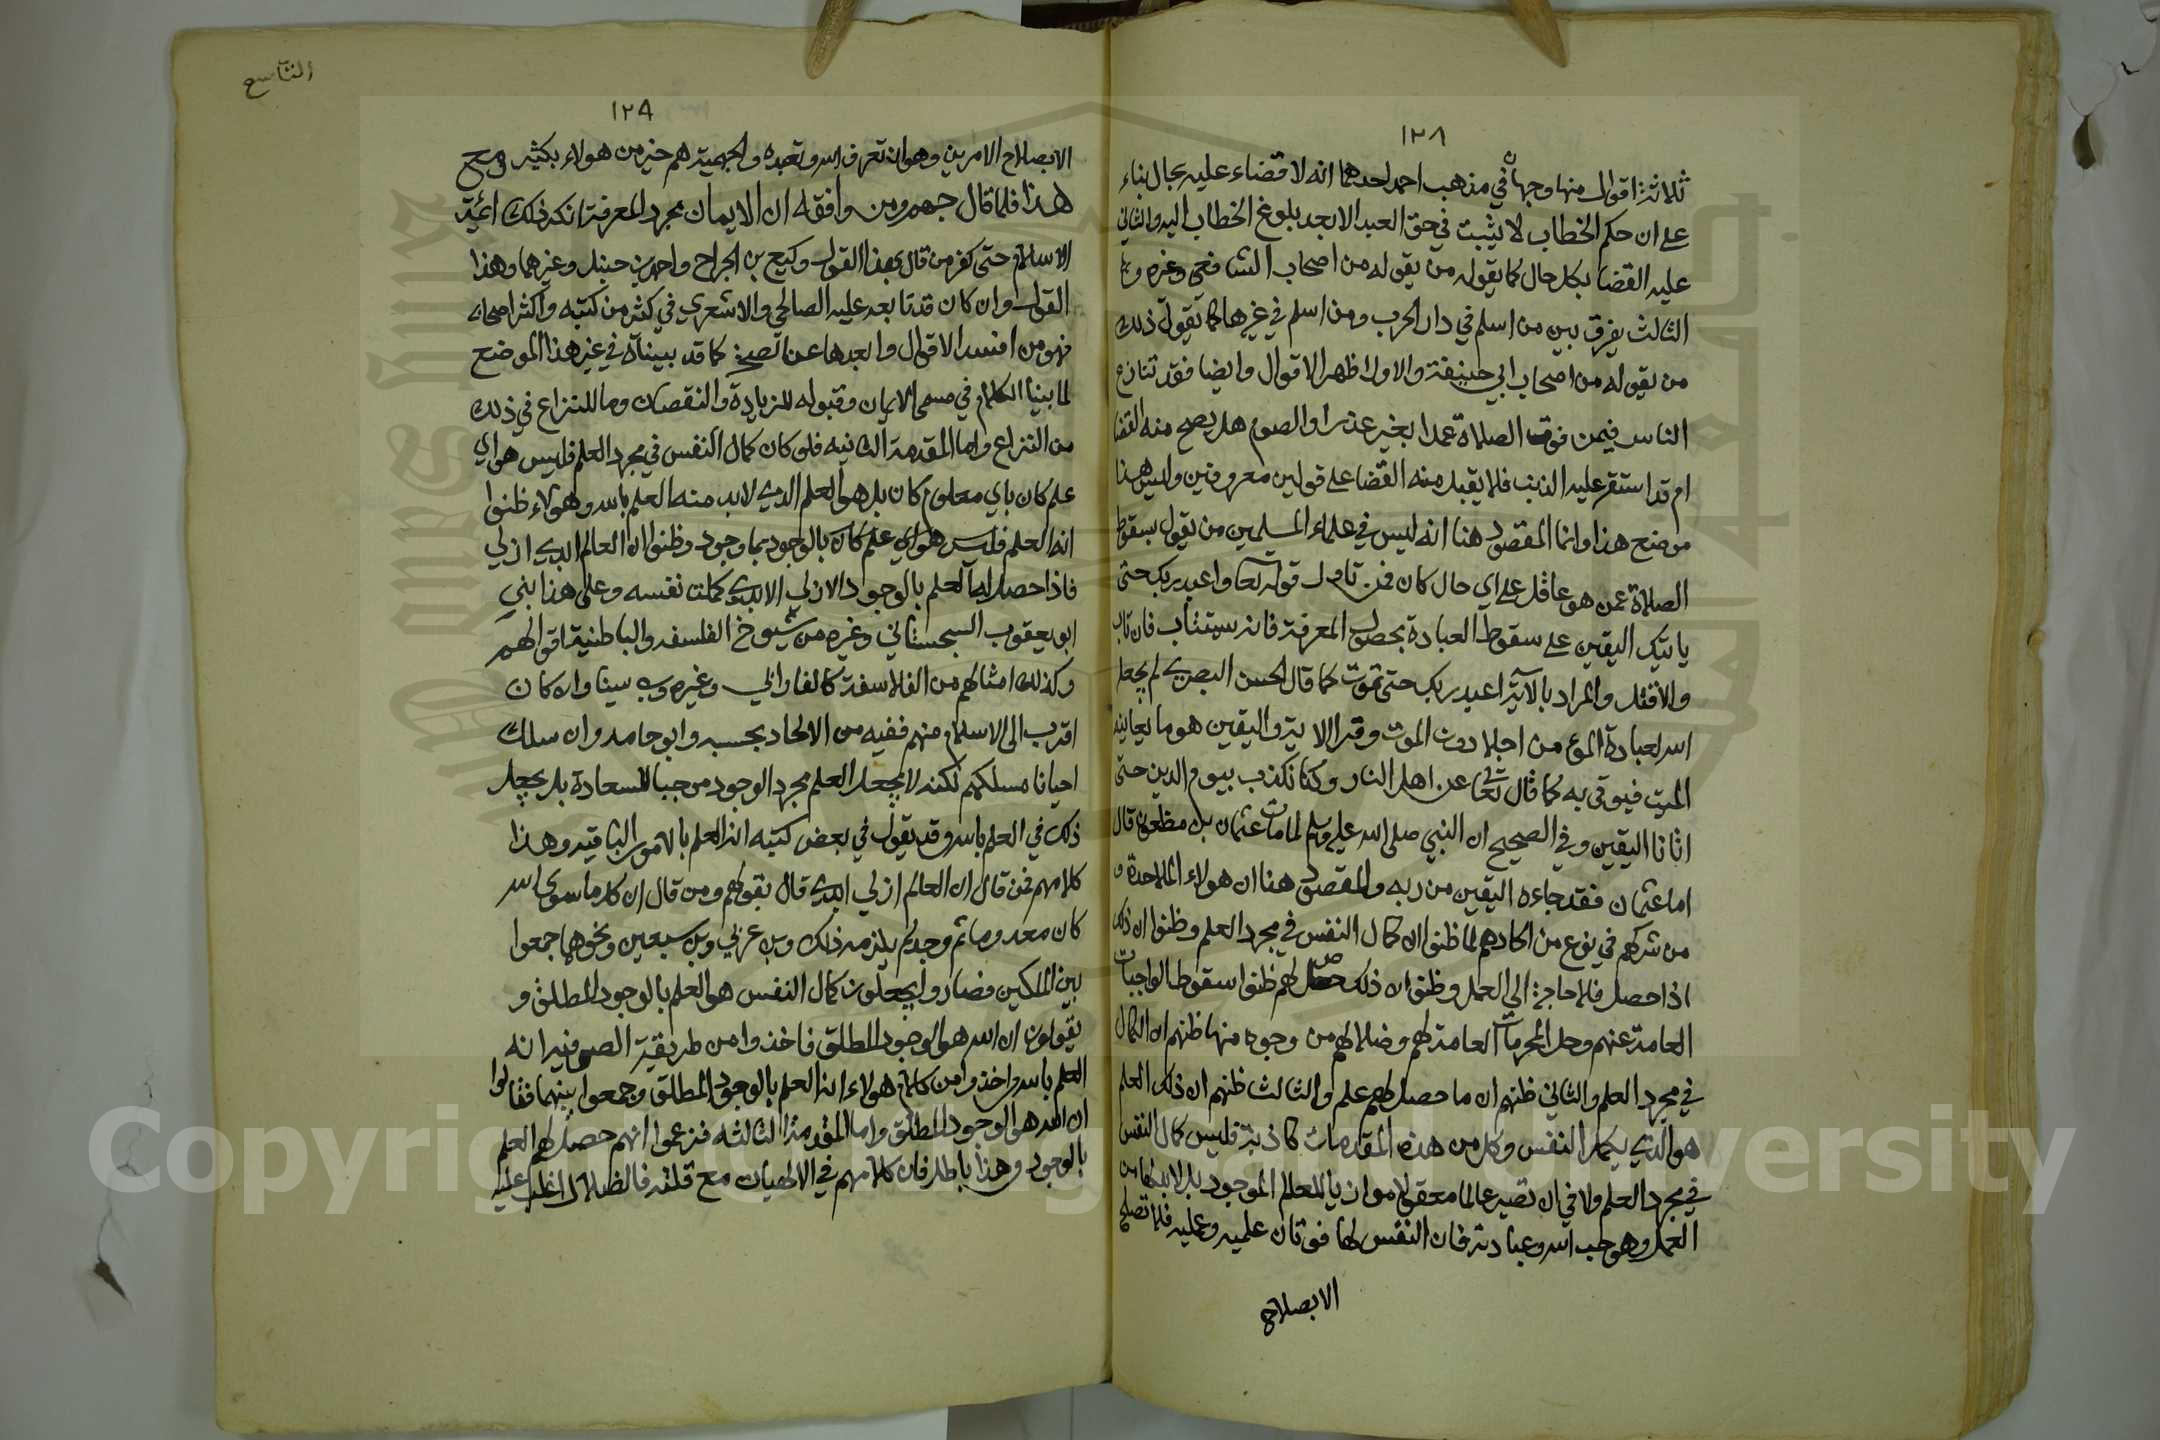 ١٢٨
ثلاثة اقوال منها وجهان في مذهب احمد احدهما انه لا قضاء عليه بحال بناء
على ان حكم الخطاب لا يثبت في حق العبد الا بعد بلوغ الخطاب اليه والثاني
عليه القضا بكل حال كما يقوله من يقوله من اصحاب الشافعي وغيره و
الثالث يفرق بين من اسلم في دار الحرب ومن اسلم في غيرها كما يقول ذلك
من يقوله من اصحاب ابي حنيفة والاول اظهر الاقوال وايضا فقد تنازع
الناس فيمن فوت الصلاة عمدا بغير عذر او الصوم هل يصح منه القضا
ام قد استقر عليه الذنب فلا يقبل منه القضا على قولين معروفين وليس هذا
موضع هذا وانما المقصود هنا انه ليس في علماء المسلمين من يقول بسقوط
الصلاة عمن هو عاقل على اي حال كان فمن تاول قوله تعا واعبد ربك حتى
ياتيك اليقين على سقوط العبادة بحصول المعرفة فانه يستتاب فان تاب
والا قتل والمراد بالآية اعبد ربك حتى تموت كما قال الحسن البصري لم يجعل
الله لعبادة المؤمن اجلا دون الموت وقرا الاية واليقين هو ما يعاينه
الميت فيوقن به كما قال تعا عن اهل النار وكنا نكذب بيوم الدين حتى
اتانا اليقين وفي الصحيح ان النبي صلى الله عليه وسلم لما مات عثمان بن مظعون قال
اما عثمان فقد جاءه اليقين من ربه والمقصود هنا ان هولاء الملاحدة و
من شركهم في نوع من الحادهم لما ظنوا ان كمال النفس في مجرد العلم وظنوا ان ذلك
اذا حصل فلا حاجة الى العمل وظنوا ان ذلك حصل لهم ظنوا سقوط الواجبات
العامة عنهم وحل المحرمات العامة لهم وضلالهم من وجوه منها ظنهم ان الكمال
في مجرد العلم والثاني ظنهم ان ما حصل لهم علم والثالث ظنهم ان ذلك العلم
هو الذي يكمل النفس وكل من هذه المقدمات كاذبة فليس كمال النفس
في مجرد العلم ولا في ان تصير عالما معقولا موازيا للعالم الموجود بل لابد لها من
العمل وهو حب الله وعبادته فان النفس لها قوتان علميه وعمليه فلا تصلح
الا بصلاح
التاسع
١٢٩
الا بصلاح الامرين وهو ان تعرف الله وتعبده والجهمية هم خير من هولاء بكثير ومع
هذا فلما قال جهم ومن وافقه ان الايمان مجرد المعرفة انكر ذلك ائمة
الاسلام حتى كفر من قال بهذا القول وكيع بن الجراح واحمد بن حنبل وغيرهما وهذا
القول وان كان قد تابعه عليه الصالحي والاشعري في كثير من كتبه واكثر اصحابه
فهو من افسد الاقوال وابعدها عن الصحة كما قد بيناه في غير هذا الموضع
لما بينا الكلام في مسمى الايمان وقبوله للزيادة والنقصان وما للنزاع في ذلك
من النزاع واما المقدمة الثانيه فلو كان كمال النفس في مجرد العلم فليس هو اي
علم كان باي معلوم كان بل هو العلم الذي لا بد منه العلم بالله وهؤلاء ظنوا
انه العلم فليس هو اي علم كان بالوجود بما وجود وظنوا ان العالم ابدي ازلي
فاذا حصل لها العلم بالوجود الازلي الابدي كملت نفسه وعلى هذا بنى
ابو يعقوب السجستاني وغيره من شيوخ الفلسفه والباطنية اقوالهم
وكذلك امثالهم من الفلاسفة كالفارابي وغيره وبن سينا وان كان
اقرب الى الاسلام منهم ففيه من الالحاد بحسبه وابو حامد وان سلك
احيانا مسلكهم لكنه لا يجعل العلم مجرد الوجود موجبا للسعادة بل يجعل
ذلك في العلم بالله وقد يقول في بعض كتبه انه العلم بالامور الباقيه وهذا
كلامهم فمن قال ان العالم ازلي ابدي قال بقولهم ومن قال ان كل ما سوى الله
كان معدوما ثم وجد لم يلزمه ذلك وبن عربي وبن سبعين ونحوهما جمعوا
بين المسلكين فصاروا يجعلون كمال النفس هو العلم بالوجود المطلق و
يقولون ان الله هو الوجود المطلق فاخذوا من طريقة الصوفيه انه
العلم بالله واخذوا من كلام هولاء انه العلم بالوجود المطلق وجمعوا بينهما فقالوا
ان الله هو الوجود المطلق واما المقدمة الثالثه فزعموا انهم حصل لهم العلم
بالوجود وهذا باطل فان كلامهم في الالهيات مع قلته فالضلال اغلب عليه